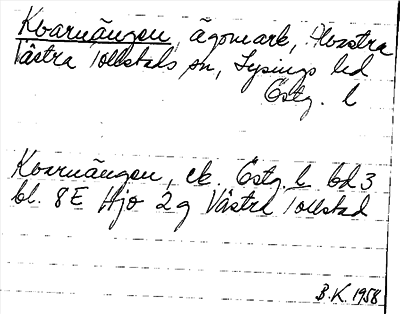 Kvarnängen, ägomark, Alvastra
Västra Tollstads sn, Lysings hd
Östg. l
Kvarnängen, ek. Östg. l. bd 3
bl. 8E Hjo 2g Västra Tollstad
B.K. 1958